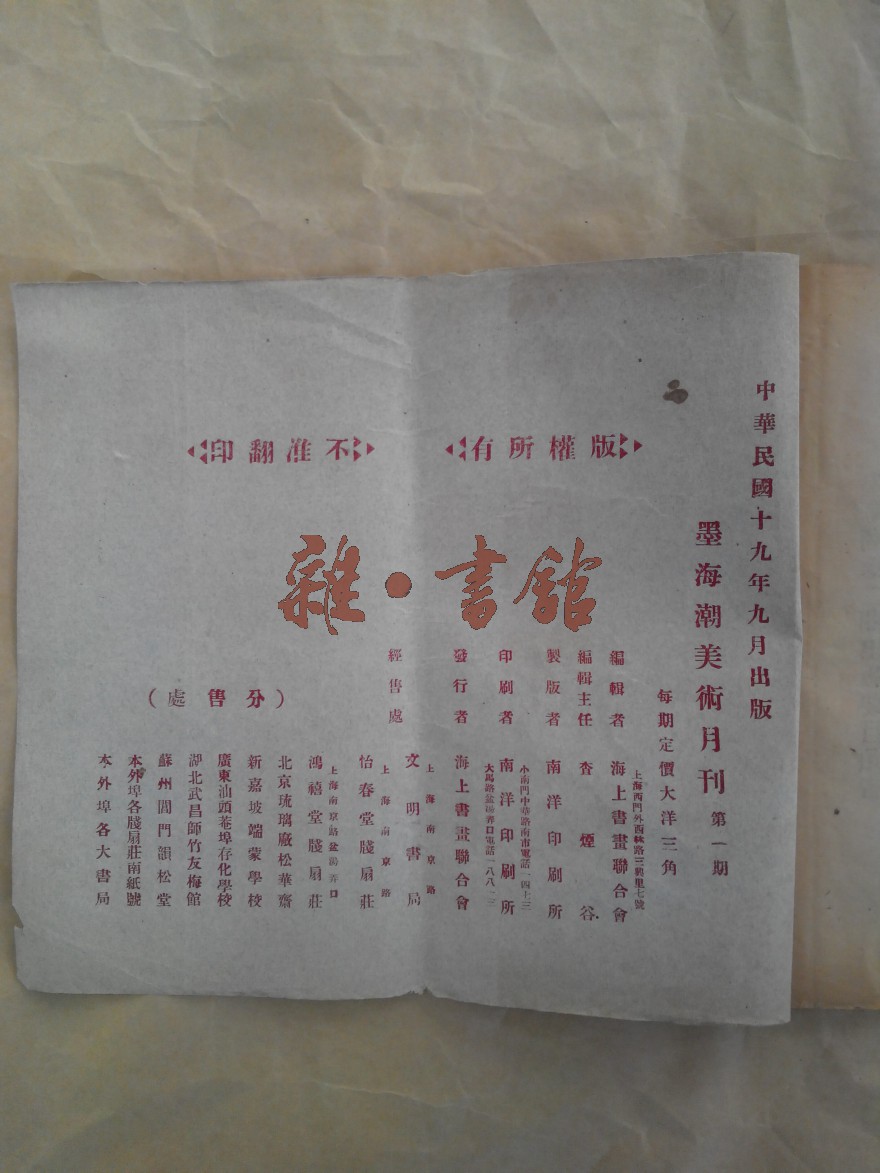 中華民國十九年九月出版
墨海潮美術月刊 第一期
每期定價大洋三角
版權所有
不准翻印
編輯者 海上書畫聯合會
上海西門外西林路三興里七號
編輯主任 查煙谷
製版者 南洋印刷所
小南門中華路南市電話一四七三
印刷者 南洋印刷所
大馬路盆湯弄口電話一八八
發行者 海上書畫聯合會
經售處
上海南京路
文明書局
上海南京路
怡春堂牋扇莊
上海南京路盆湯弄口
鴻禧堂牋扇莊
(分售處)
北京琉璃廠松華齋
新嘉坡端蒙學校
廣東汕頭菴埠存化學校
湖北武昌師竹友梅館
蘇州閶門韻松堂
本外埠各牋扇莊南紙號
本外埠各大書局
雜·書館